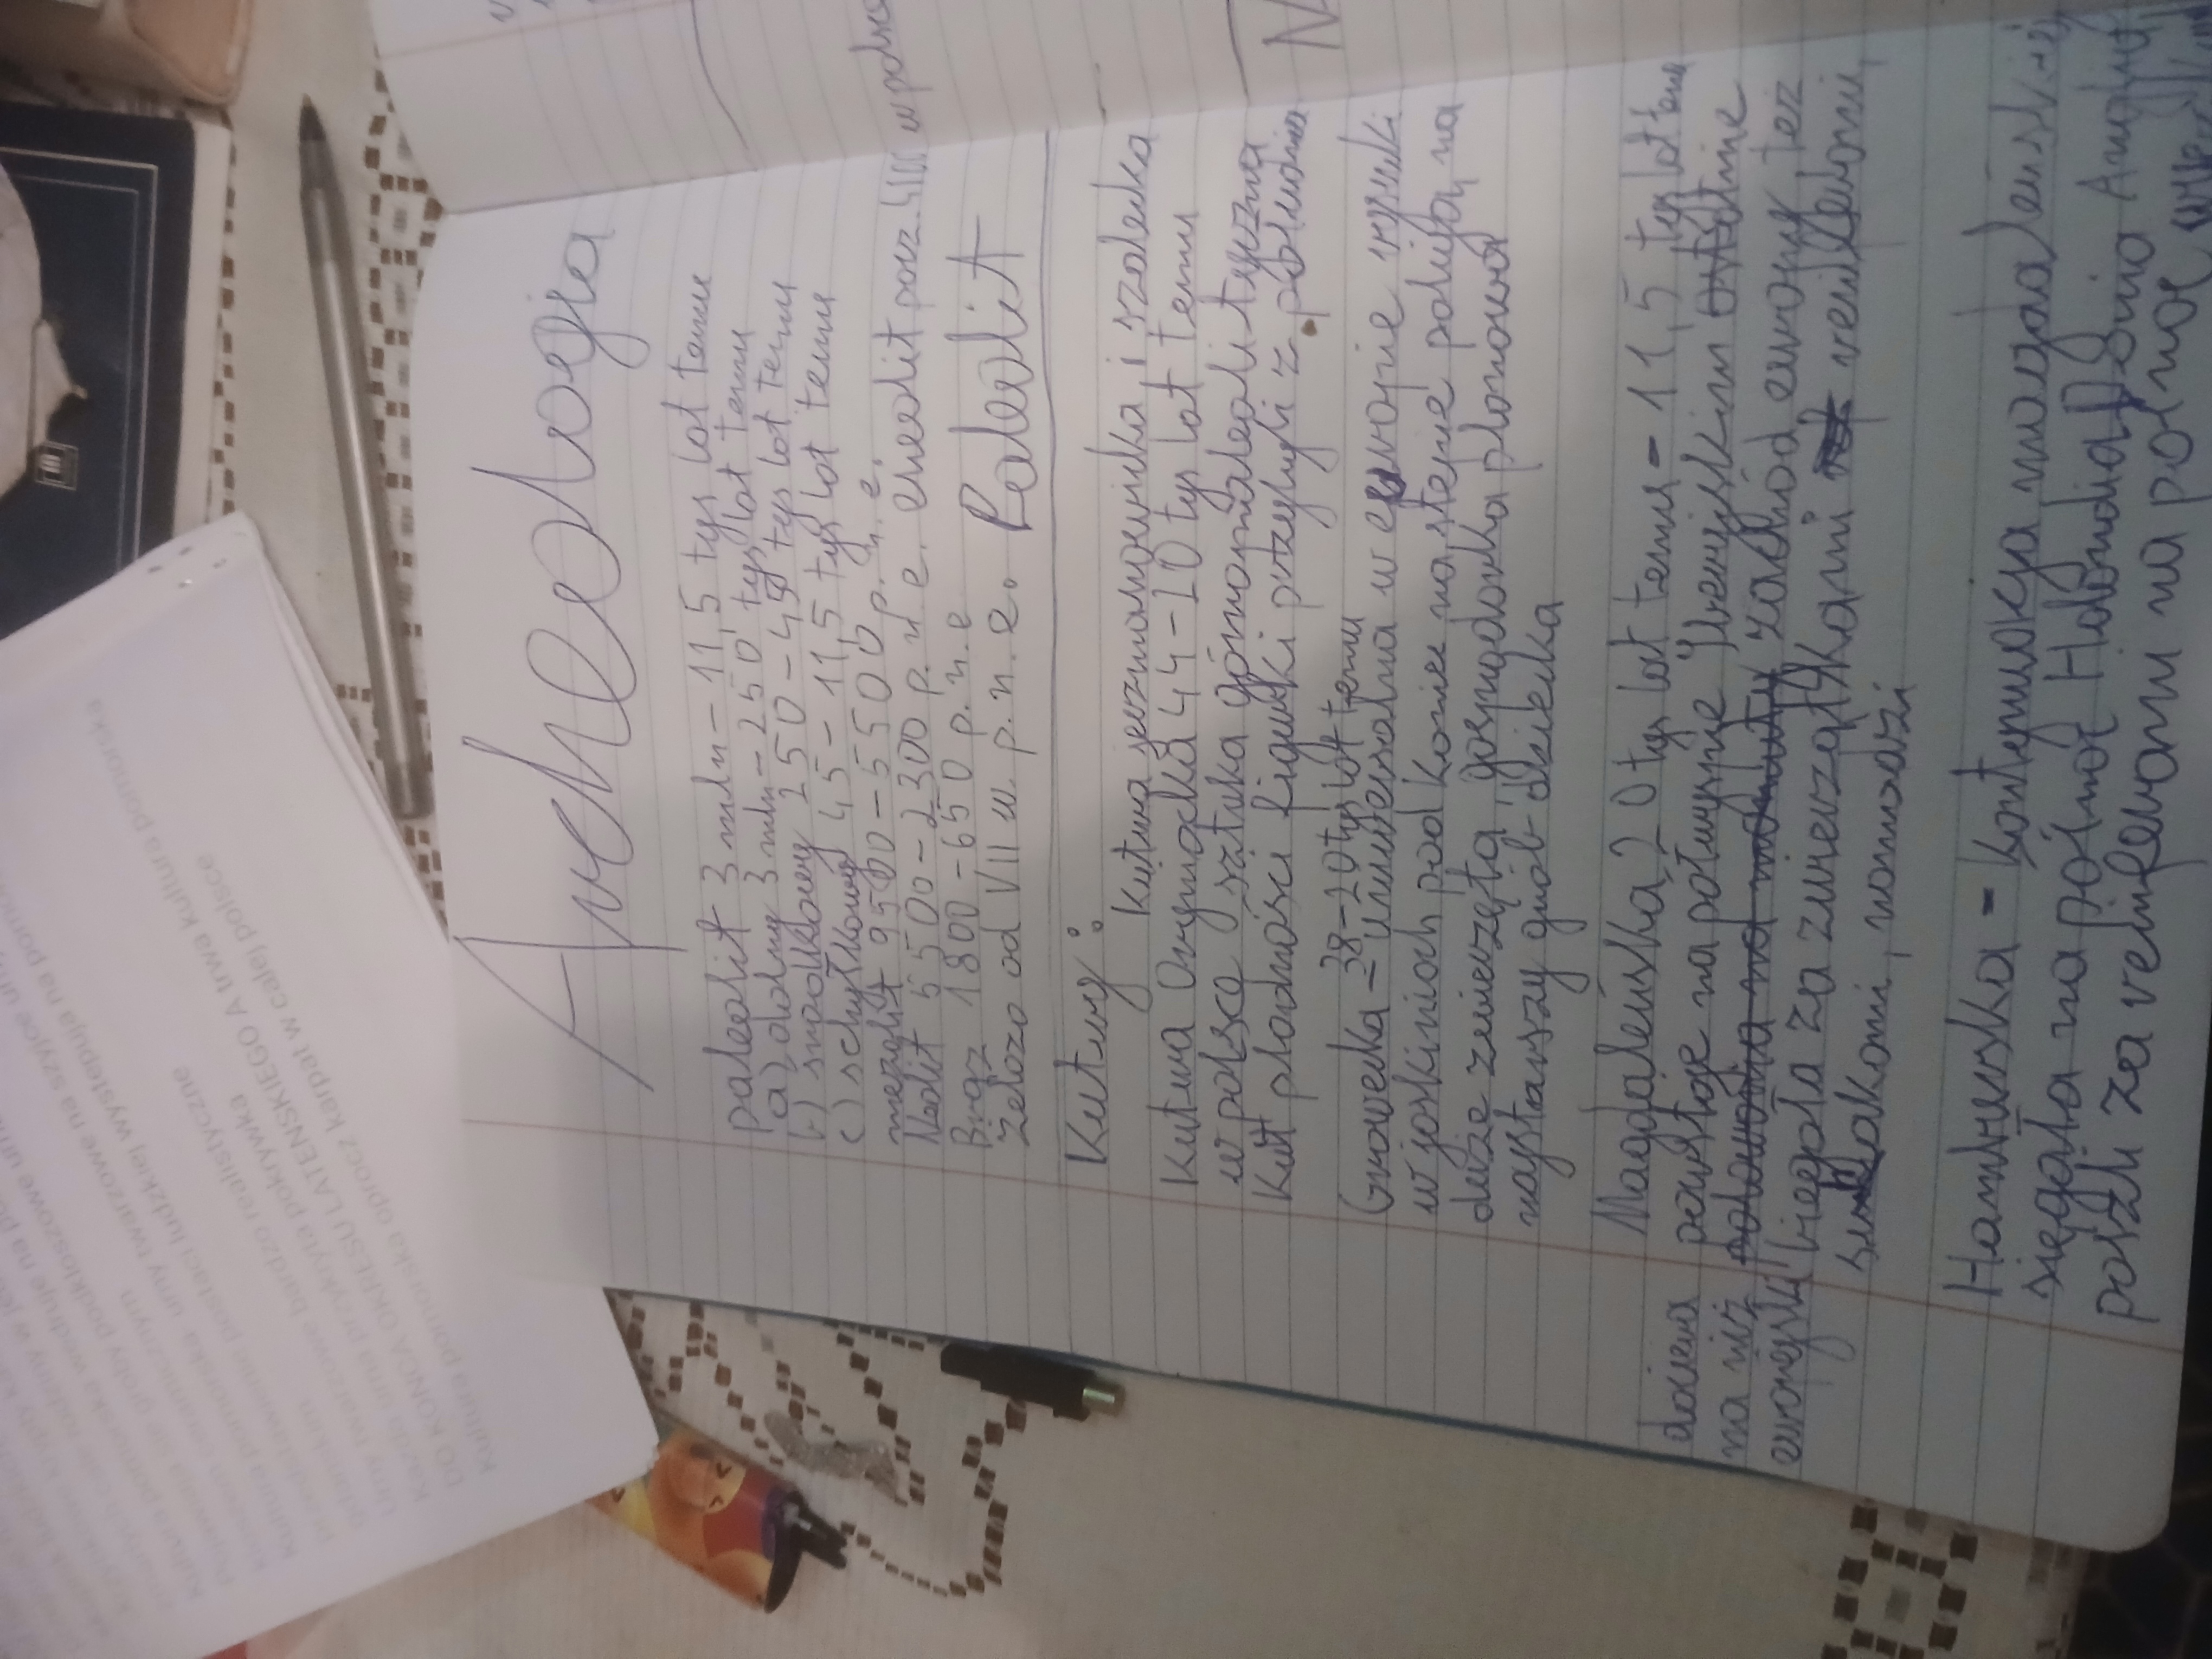 Kultura pomorska wedruje na
Pojawiaja sie groby podkloszowe
kloszem ceramicznym
Kultura pomorska- urny twarzowe na szyjce
przedstawienie postaci ludzkiej wystepuja na
gdanskim
Urny twarzowe bardzo realistyczne
Kazda urna przykryta pokrywka
DO KONCA OKRESU LATENSKIEGO A trwa kultura pomorska
Kultura pomorska oprocz karpat w calej polsce
Archeologia
paleolit 3 mln – 11,5 tys lat temu
a) dolny 3 mln – 250 tys lat temu
b) środkowy 250 – 45 tys lat temu
c) schyłkowy 45 – 11,5 tys lat temu
mezolit 9500 – 5500 p. n. e.
Neolit 5500 – 2300 p. n. e. eneolit pocz. 4100 w polsce
Brąz 1800 – 650 p. n. e
Żelazo od VII w. p. n. e. Paleolit
Kultury:
Kultura jerzmanowicka i szelecka
Kultura Oryniacka 44 – 20 tys lat temu
w polsce sztuka górnopaleolityczna
Kult płodności figurki przybyli z południa
38 – 20 tys lat temu
Grawecka – uniwersalna w europie rysunki
w jaskiniach pod koniec na stepie polują na
duże zwierzęta, gospodarka planowa
najstarszy grób dziecka
Magdaleńska 20 tys lat temu – 11,5 tys lat temu
powstaje na półwyspie Iberyjskim
polowania na mamuty zachód europy, też
biegała za zwierzątkami reniferami,
nomadzi
dociera
na niż
europejski
Hamburska – kontynuacja magdaleńskiej
sięgała na północ Holandia Dania Anglia
poszli za reniferami na północ